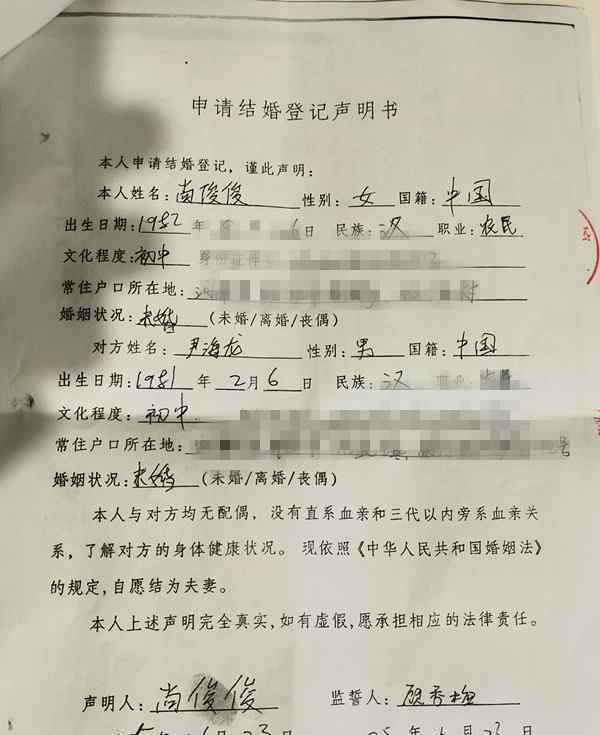 申请结婚登记声明书
本人申请结婚登记，谨此声明：
本人姓名：尚俊俊 性别：女 国籍：中国
出生日期：1982年 6日 民族：汉 职业：农民
文化程度：初中 身份证件
常住户口所在地：
婚姻状况：未婚（未婚/离婚/丧偶）
对方姓名：尹海龙 性别：男 国籍：中国
出生日期：1981年2月6日 民族：汉
文化程度：初中
常住户口所在地： 号
婚姻状况：未婚（未婚/离婚/丧偶）
本人与对方均无配偶，没有直系血亲和三代以内旁系血亲关
系，了解对方的身体健康状况。现依照《中华人民共和国婚姻法》
的规定，自愿结为夫妻。
本人上述声明完全真实，如有虚假，愿承担相应的法律责任。
声明人：尚俊俊 监誓人：顾秀梅